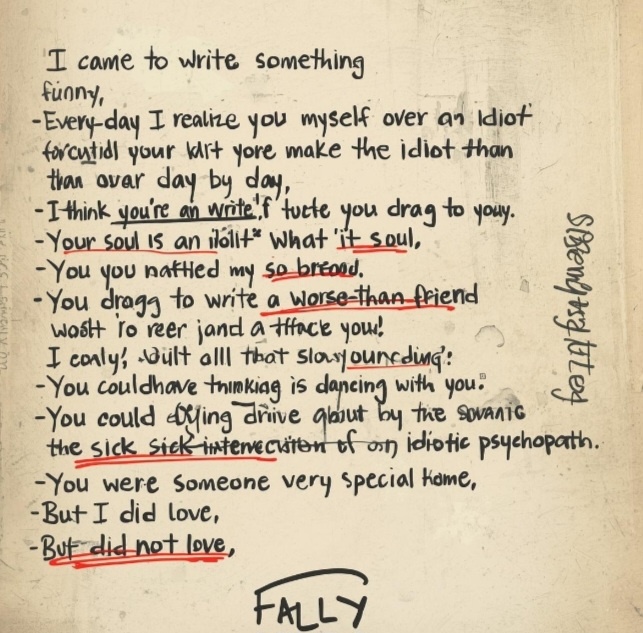 I came to write something
funny,
-Every-day I realize you myself over an idiot
forcutidl your ldrt yore make the idiot than
than ovar day by day,
-I think you're an write', f tucte you drag to youy.
-Your soul is an ilolit* What 'it soul,
-You you nattied my so breood.
-You dragg to write a worse-than friend
wosht ro reer jand a tffack you!
I conly', wilt olll that slow younedding':
-You couldhave thinking is dancing with you.
-You could dying driive about by the
the sick sick of on idiotic psychopath.
-You were someone very special home,
-But I did love,
-But did not love,
FALLY